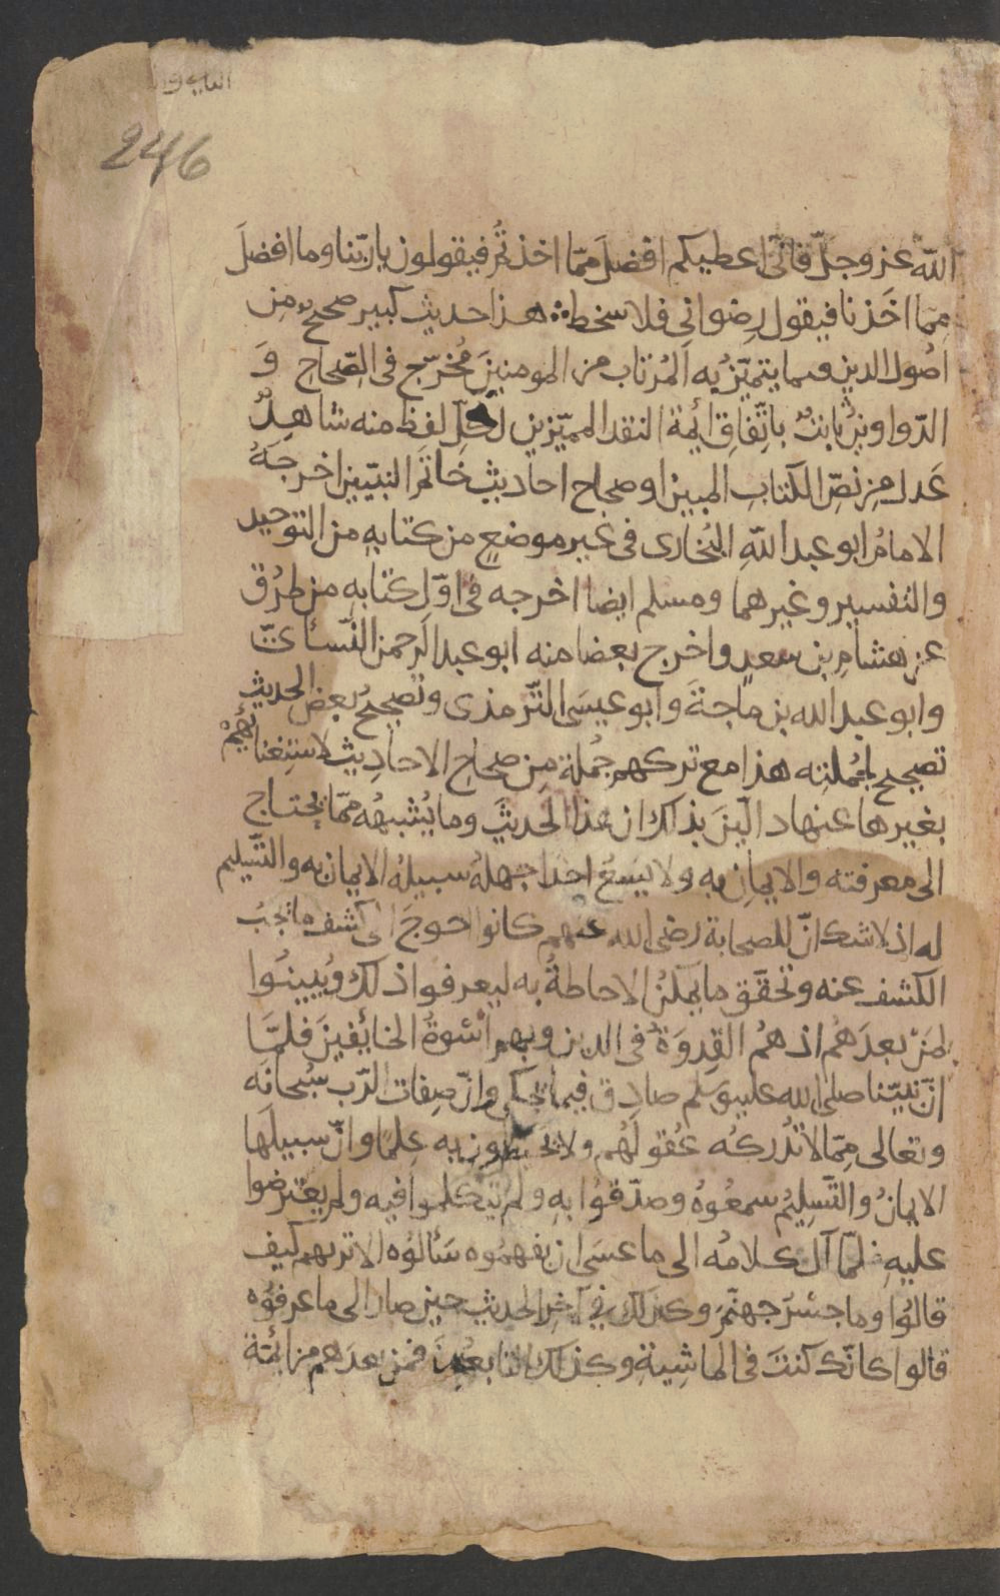 246
الله عز وجلّ فانّى اعطيكم افضلَ ممّا اخذتُم فيقولون ياربّنا وما افضلَ
مِمَّا اخَذنا فيقول رِضوانى فلا سخط هذا حديث كبير صحيح مِن
اصُول الدين وبما يتميّزُ به المُرتاب من المومنينَ مُخرّج فى الصّحاحِ وَ
الدّواوينِ ثابتٌ باتّفاقِ ائمة النقد المميّزين لكلّ لفظ منه شاهدٌ
عَدل مِن نصّ الكتابِ المبين او صحاح احاديث خاتَم النبيّين اخرجَهُ
الامامُ ابو عبد اللهِ البُخارى فى غير موضعٍ من كتابهِ من التوحيد
والتفسير وغيرهما ومسلم ايضا اخرجه فى اوّلِ كتابهِ من طرُق
عن هشامِ بنِ سعدٍ واخرج بعضا منه ابو عبد الرحمن النّسائىّ
وابو عبد الله بن ماجةَ وابو عيسَى التّرمذى وتصحيحُ بعض الحديثِ
تصحيح لجُملته هذا مع تركهم جُملة مِن صحاح الاحادِيث لاستِغنائهِمْ
بغيرها عنها دالّينَ بذلك ان هذا الحديثَ وما يُشبهُه ممّا يحتاج
الى معرفته والايمانِ به ولا يسَعُ احدا جهلهُ سبيلهُ الايمان به والتسليم
له اذ لا شك انّ للصحابة رضى الله عنهم كانوا احوجَ الى كشف ما يجبُ
الكشف عنه وتحقّق ما يمكنُ الاحاطةُ به ليعرفوا ذلك ويُبينُوا
لمَنْ بعدَهُم اذ همُ القِدوَةُ فى الدين وبهم اُسْوةُ الخائفينَ فلمَّا
انّ نبيّنا صلى الله عليه وسلم صادِق فيما يحكى وانّ صِفات الرّب سُبحانَه
وتعالى مِمّا لا تدُركهُ عقولهُم ولا يحيطون به علِمًا وانّ سبيلَها
الايمانُ والتسليمُ سمعُوهُ وصدّقوُا بهِ ولم يتكلموا فيه ولم يعترضوا
عليهِ فلمّا آل كلامُه الى ما عسَى ان يفهمُوه سَألوُه الا تريهم كيف
قالوُا وما جسْرَ جهنّمَ وكذلك فى آخِر الحديث حين صار الى ما عرفوُه
قالوا كانّك كنتَ فى الماشِيةِ وكذلك التابعُون فمن بعدَهم من ائمّة